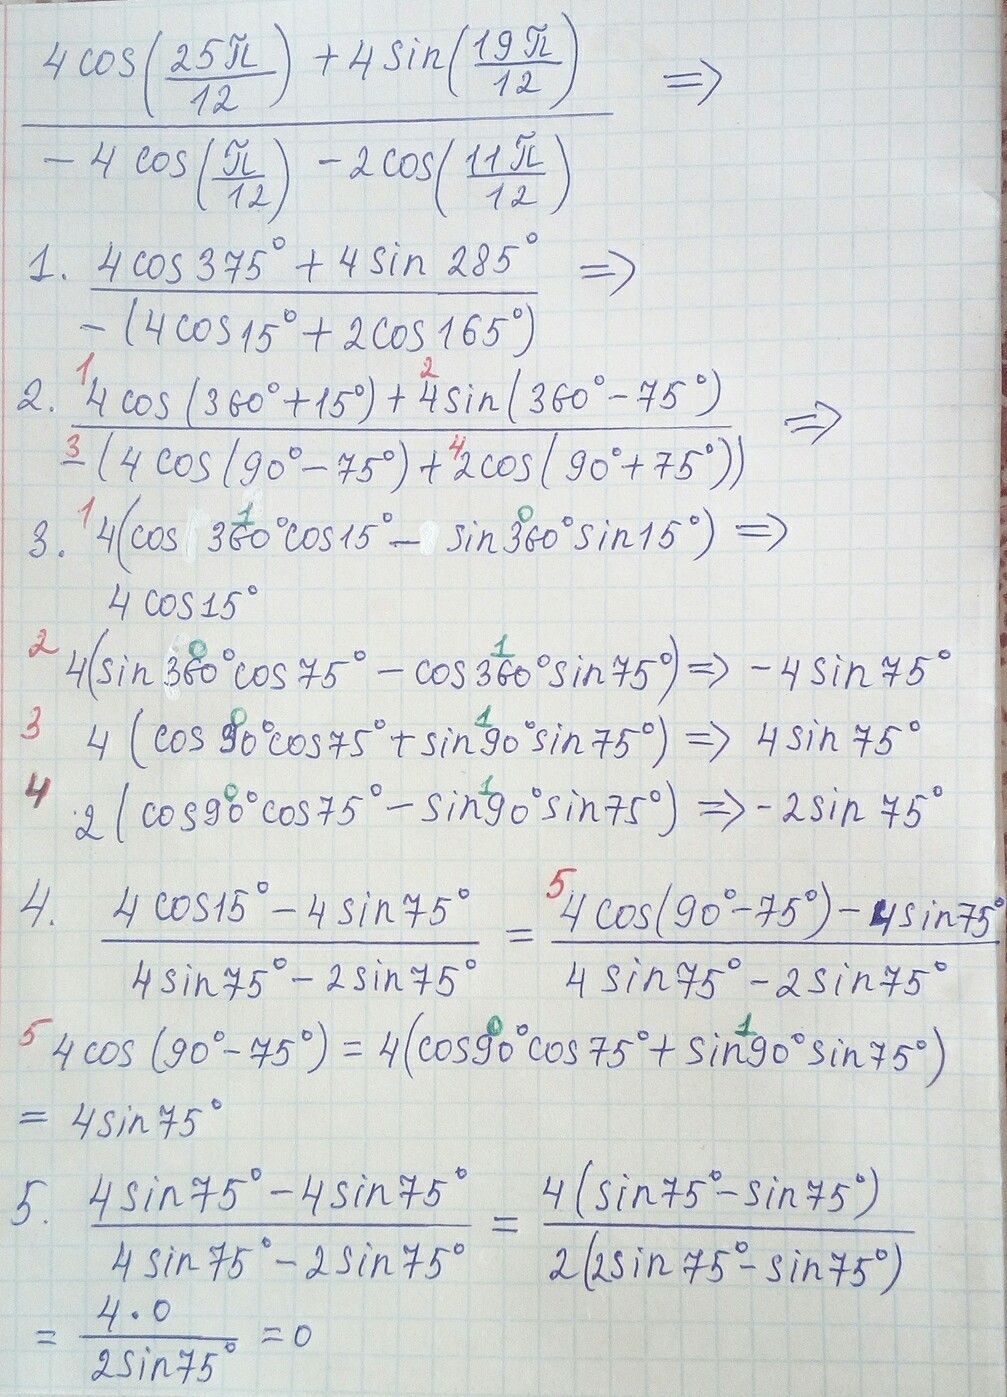 4cos(25π/12) + 4sin(19π/12) ⇒
-4cos(π/12) - 2cos(11π/12)
1. 4cos375° + 4sin 285° ⇒
-(4cos15° + 2cos165°)
2. 1 4cos(360°+15°) + 2 4sin(360°-75°) ⇒
3 -(4cos(90°-75°) + 4 2cos(90°+75°))
3. 1 4(cos 360°cos15° - sin360°sin15°) ⇒ 1 0
4cos15°
2 4(sin360°cos75° - cos360°sin75°) ⇒ -4sin75° 0 1
3 4(cos90°cos75° + sin90°sin75°) ⇒ 4sin75° 0 1
4 2(cos90°cos75° - sin90°sin75°) ⇒ -2sin75° 0 1
4. 4cos15° - 4sin75° = 5 4cos(90°-75°) - 4sin75°
4sin75° - 2sin75° 4sin75° - 2sin75°
5 4cos(90°-75°) = 4(cos90°cos75° + sin90°sin75°) 0 1
= 4sin75°
5. 4sin75° - 4sin75° = 4(sin75° - sin75°)
4sin75° - 2sin75° 2(2sin75° - sin75°)
= 4·0 = 0
2sin75°